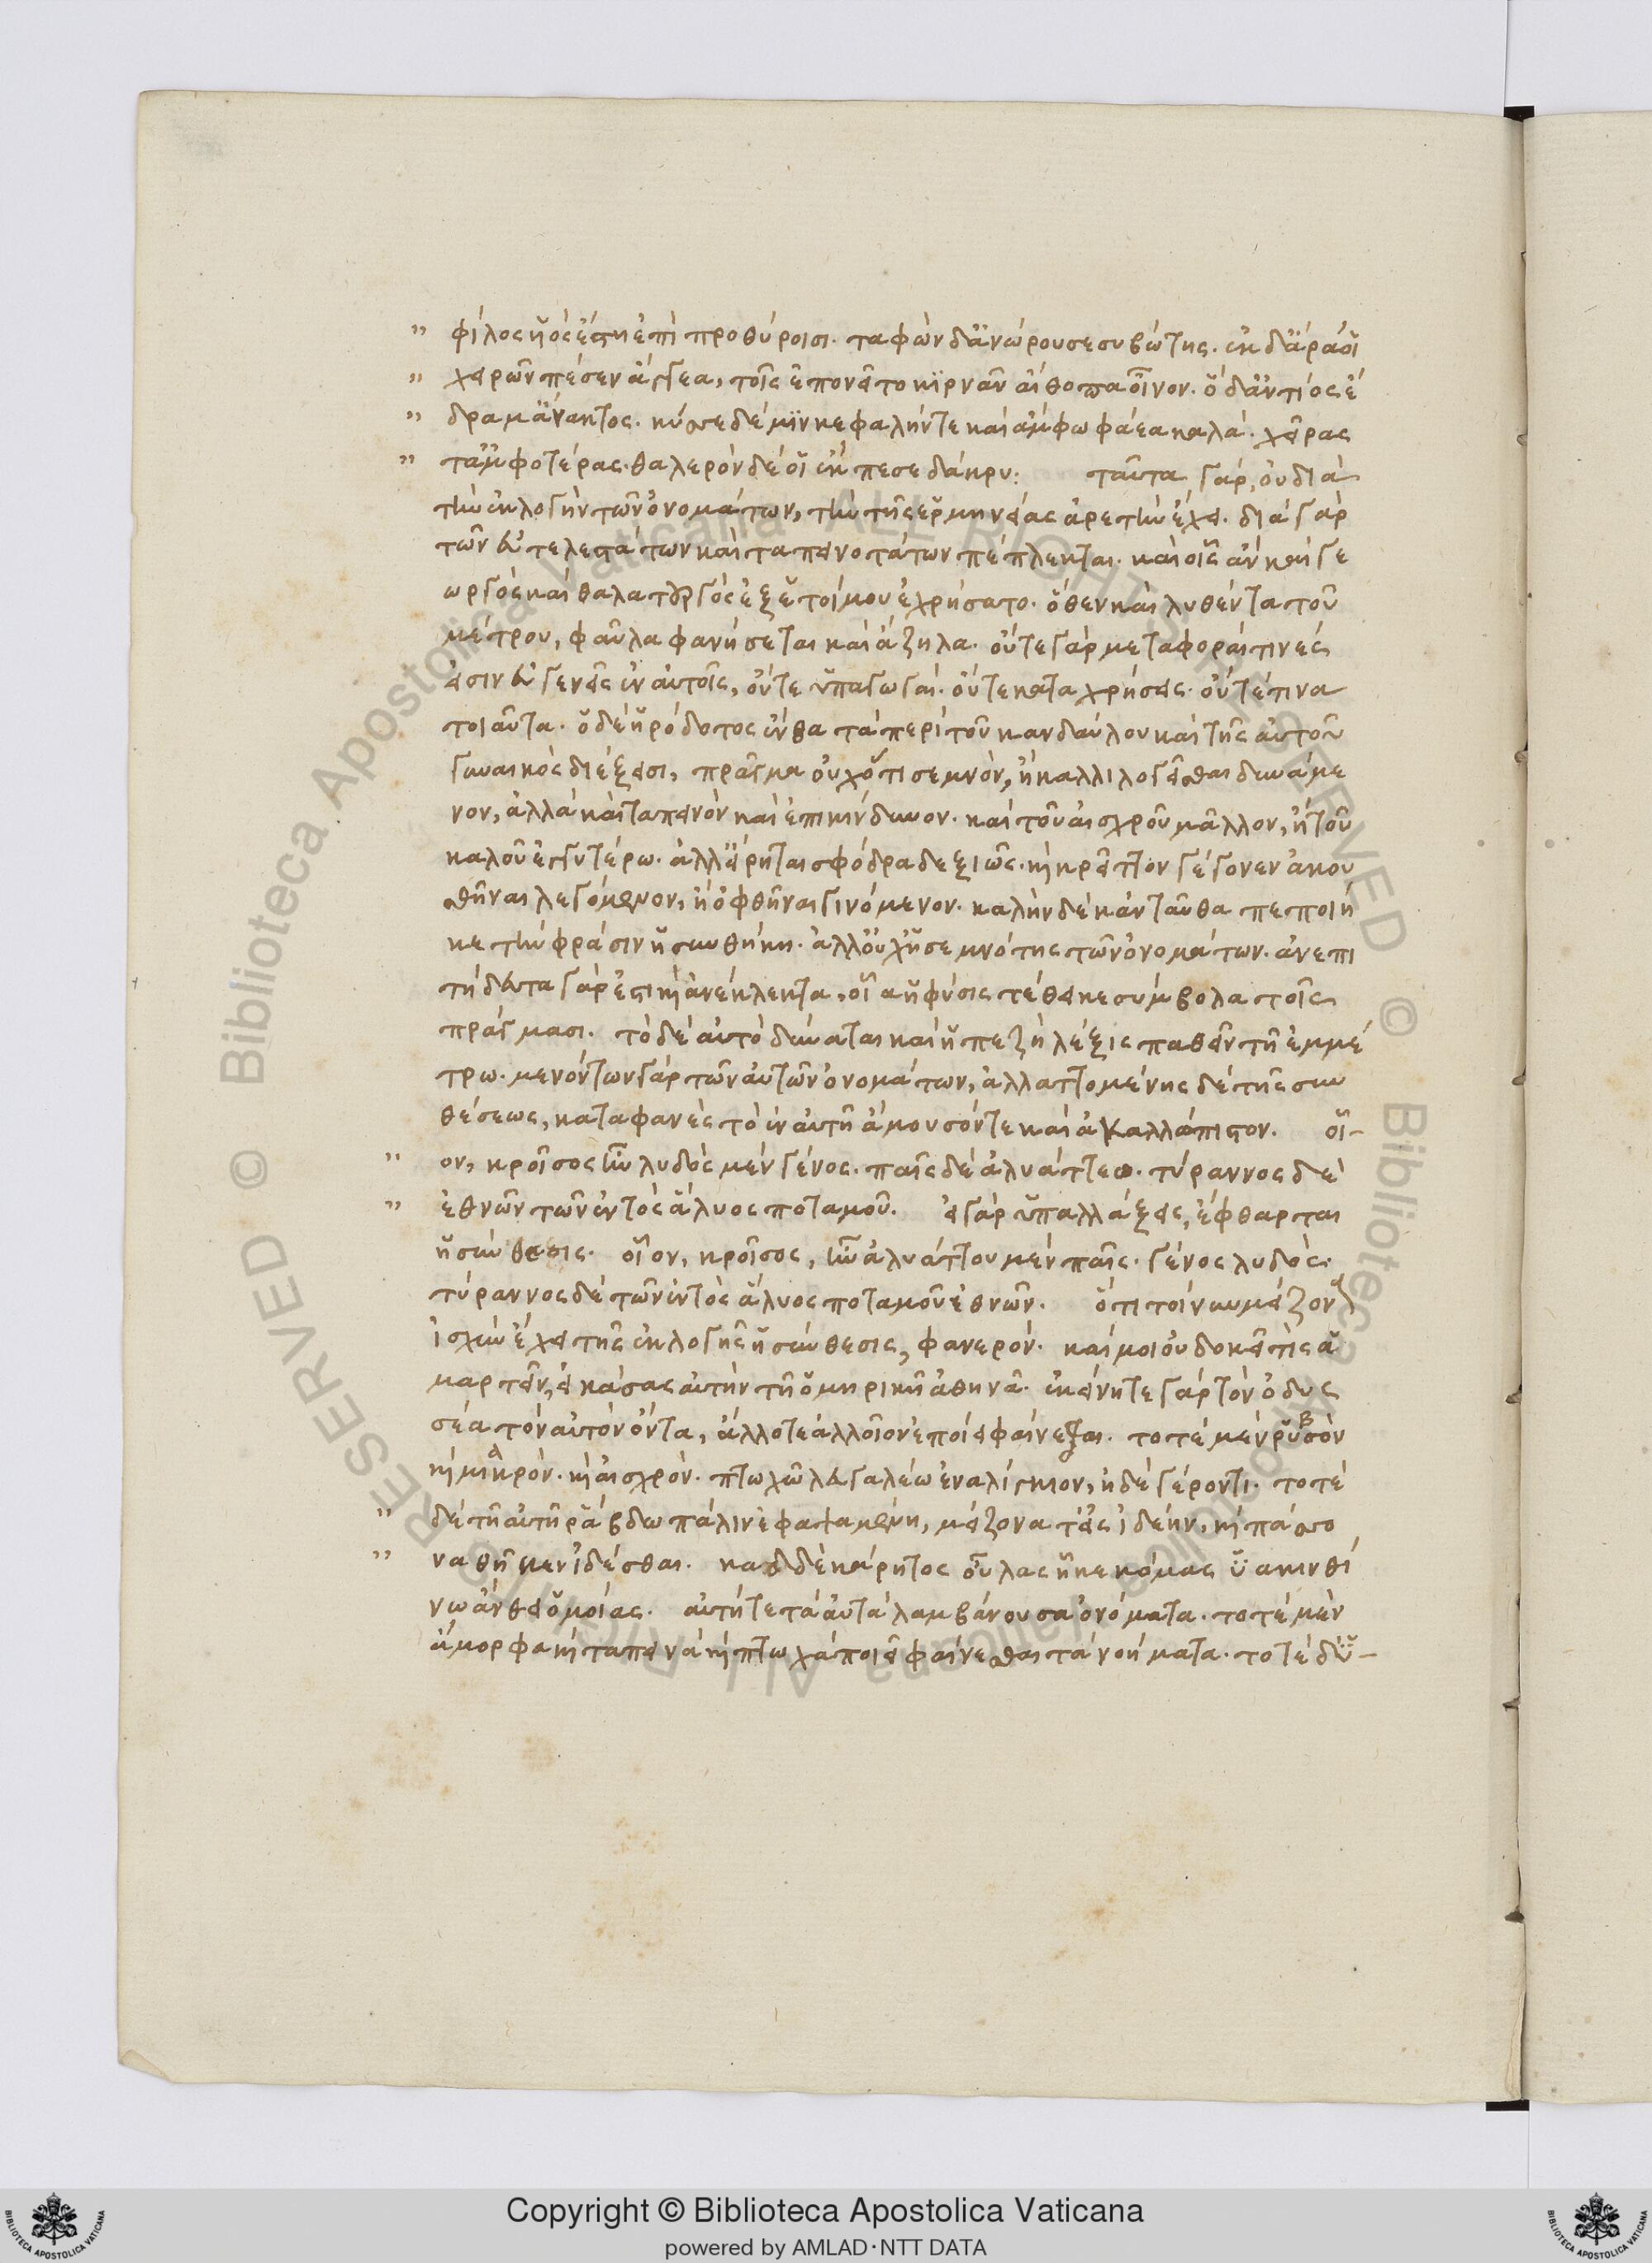 " φίλος υἱὸς ἔστη ἐπὶ προθύροισι. ταφὼν δ' ἀνώρουσε συβώτης. ἐκ δ' ἄρα οἱ
" χειρῶν πέσεν ἄγγεα, τοῖς ἐπονεῖτο κιρνᾶν αἴθοπα οἶνον. ὁ δ' ἀντίος ἔ
" δραμ' ἄνακτος. κύσσε δέ μιν κεφαλήν τε καὶ ἄμφω φάεα καλά. χεῖρας
" τ' ἀμφοτέρας. θαλερὸν δέ οἱ ἔκπεσε δάκρυ: ταῦτα γάρ, οὐ διὰ
τὴν ἐκλογὴν τῶν ὀνομάτων, τὴν τῆς ἑρμηνείας ἀρετὴν ἔχει. διὰ γὰρ
τῶν εὐτελεστάτων καὶ ταπεινοτάτων πέπλεκται. καὶ οἷς ἂν καὶ γε
ωργὸς καὶ θαλαττουργὸς ἐξ ἑτοίμου ἐχρήσατο. ὅθεν καὶ λυθέντα τοῦ
μέτρου, φαῦλα φανήσεται καὶ ἄζηλα. οὔτε γὰρ μεταφοραί τινές
εἰσιν εὐγενεῖς ἐν αὐτοῖς, οὔτε ὑπαγωγαί. οὔτε καταχρήσεις. οὔτέ τινα
τοιαῦτα. ὁ δὲ ἡρόδοτος ἔνθα τὰ περὶ τοῦ κανδαύλου καὶ τῆς αὐτοῦ
γυναικὸς διέξεισι, πρᾶγμα οὐχ ὅτι σεμνόν, ἢ καλλιλογεῖσθαι δυνάμε
νον, ἀλλὰ καὶ ταπεινὸν καὶ ἐπικίνδυνον. καὶ τοῦ αἰσχροῦ μᾶλλον, ἢ τοῦ
καλοῦ ἐγγυτέρω. ἀλλ' εἴρηται σφόδρα δεξιῶς. καὶ κρεῖττον γέγονεν ἀκου
σθῆναι λεγόμενον, ἢ ὀφθῆναι γινόμενον. καλὴν δὲ κἀνταῦθα πεποίη
κε τὴν φράσιν ἡ συνθήκη. ἀλλ' οὐχ ἡ σεμνότης τῶν ὀνομάτων. ἀνεπι
τήδευτα γάρ ἐστι καὶ ἀνέκλεκτα, οἷα ἡ φύσις τέθεικε σύμβολα τοῖς
πράγμασι. τὸ δὲ αὐτὸ δύναται καὶ ἡ πεζὴ λέξις παθεῖν τῇ ἐμμέ
τρω. μενόντων γὰρ τῶν αὐτῶν ὀνομάτων, ἀλλαττομένης δὲ τῆς συν
θέσεως, καταφανὲς τὸ ἐν αὐτῇ ἄμουσόν τε καὶ ἀκαλλώπιστον. οἷ-
" ον, κροῖσος ἦν λυδὸς μὲν γένος. παῖς δὲ ἀλυάττεω. τύραννος δὲ
" ἐθνῶν τῶν ἐντὸς ἅλυος ποταμοῦ. εἰ γὰρ ὑπαλλάξεις, ἔφθαρται
ἡ σύνθεσις. οἷον, κροῖσος, ἦν ἀλυάττου μὲν παῖς. γένος λυδός.
τύραννος δὲ τῶν ἐντὸς ἅλυος ποταμοῦ ἐθνῶν. ὅτι τοίνυν μείζονα
ἰσχὺν ἔχει τῆς ἐκλογῆς ἡ σύνθεσις, φανερόν. καί μοι οὐ δοκεῖ τίς ἁ
μαρτεῖν, εἰκάσας αὐτὴν τῇ ὁμηρικῇ ἀθηνᾷ. ἐκείνη τε γὰρ τὸν ὀδυς
σέα τὸν αὐτὸν ὄντα, ἄλλοτε ἀλλοῖον ἐποίει φαίνεσθαι. τοτὲ μὲν ῥυσὸν
καὶ μικρόν. καὶ αἰσχρόν. πτωχῷ λευγαλέῳ ἐναλίγκιον, ἠδὲ γέροντι. τοτὲ
" δὲ τῇ αὐτῇ ῥάβδω πάλιν ἐφαψαμένη, μείζονα τ' εἰσιδέην, καὶ πάσσο
" να θῆκεν ἰδέσθαι. καδδὲ κάρητος οὔλας ἧκε κόμας ὑακινθί
νω ἄνθει ὁμοίας. αὐτή τε τὰ αὐτὰ λαμβάνουσα ὀνόματα. τοτὲ μὲν
ἄμορφα καὶ ταπεινὰ καὶ πτωχὰ ποιεῖ φαίνεσθαι τὰ νοήματα. τοτὲ δ' ὑ-
Copyright © Biblioteca Apostolica Vaticana
powered by AMLAD·NTT DATA